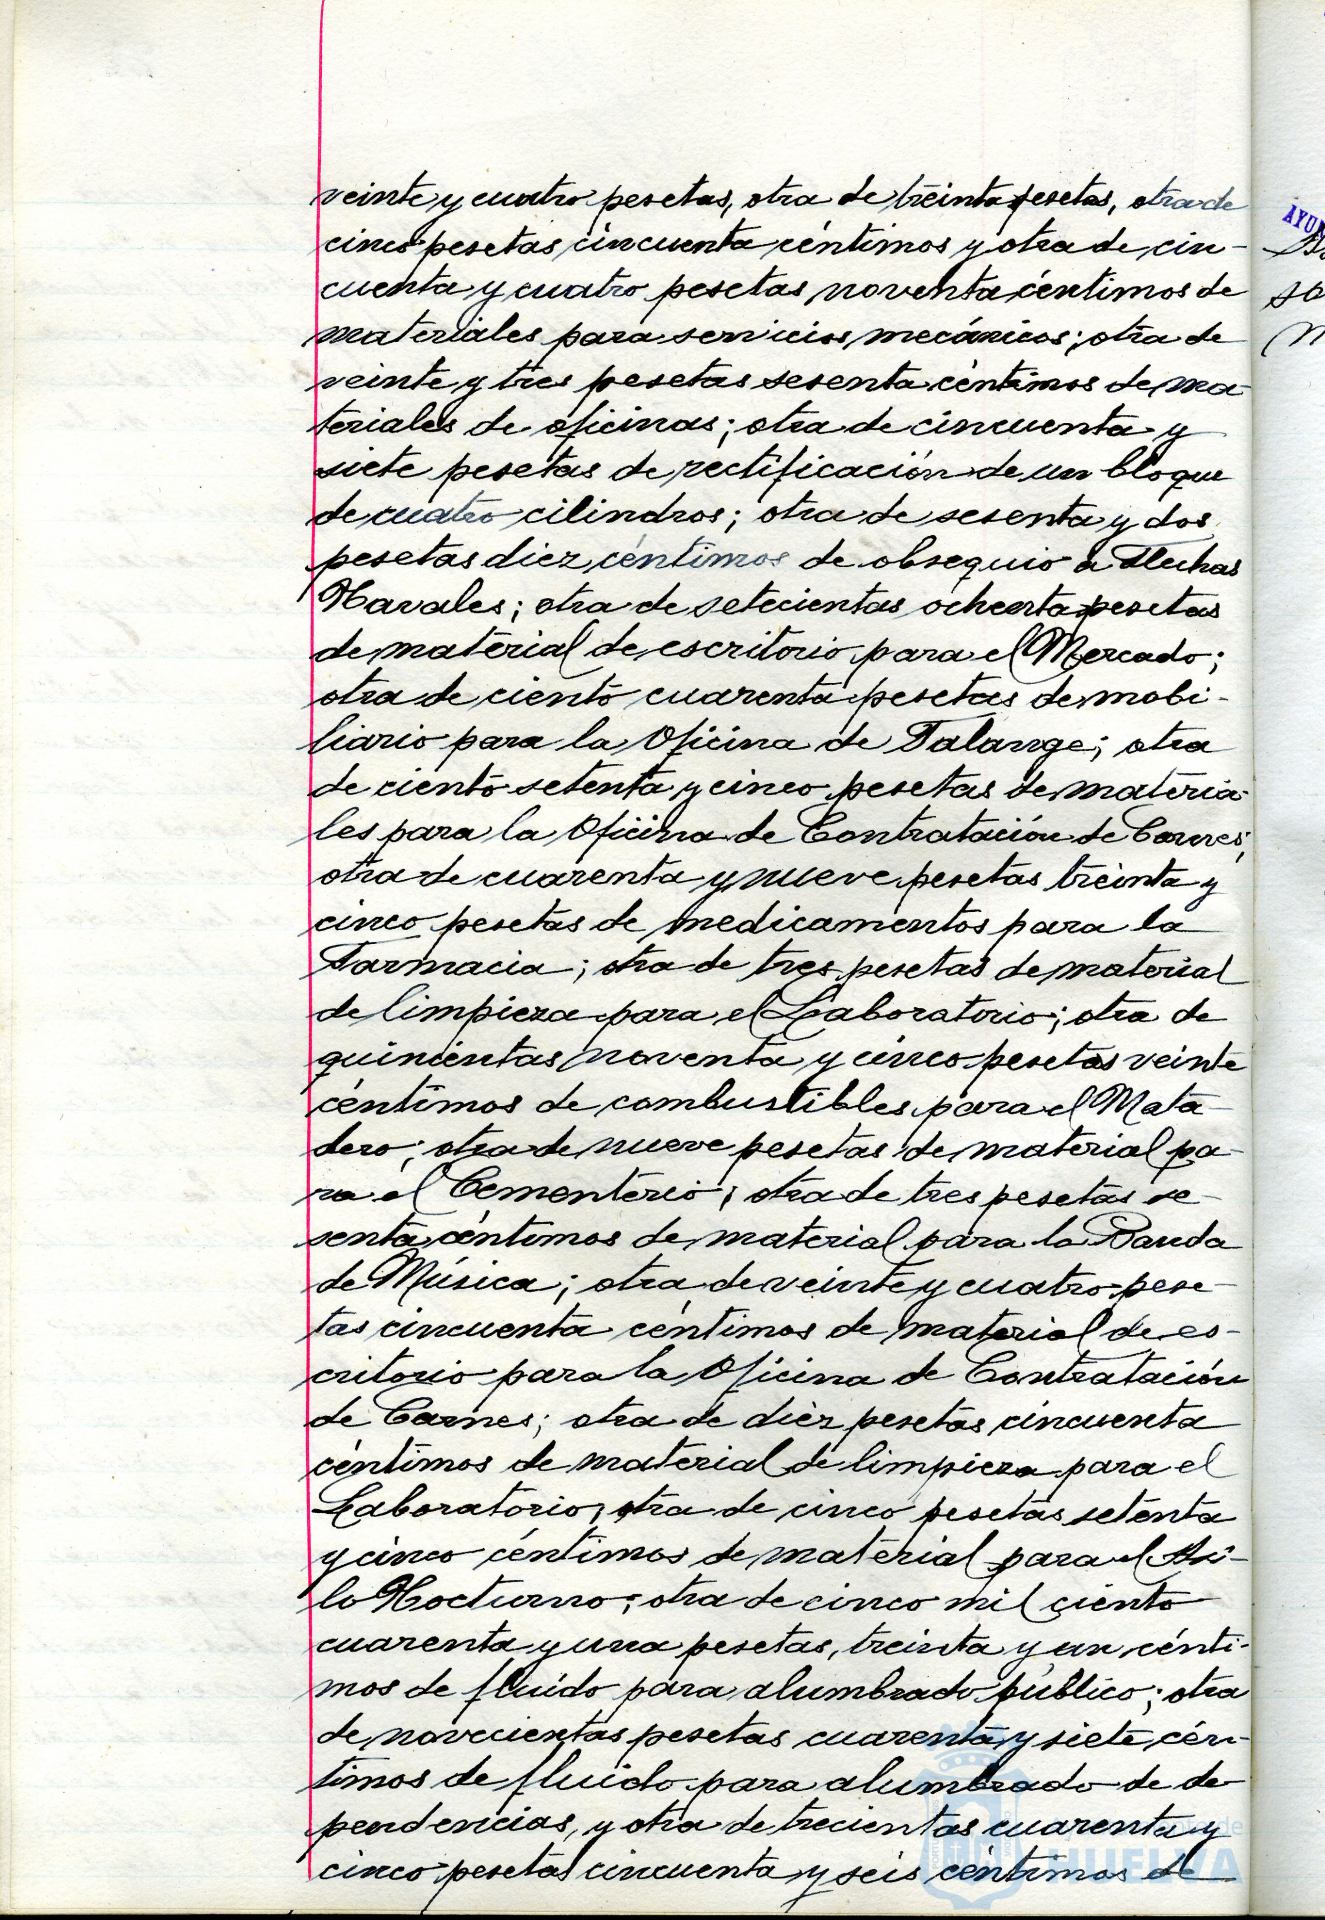 veinte y cuatro pesetas, otra de treinta pesetas, otra de
cinco pesetas cincuenta céntimos y otra de cin-
cuenta y cuatro pesetas noventa céntimos de
materiales para servicios mecánicos; otra de
veinte y tres pesetas sesenta céntimos de ma-
teriales de oficinas; otra de cincuenta y
siete pesetas de rectificación de un bloque
de cuatro cilindros; otra de sesenta y dos
pesetas diez céntimos de obsequio a Flechas
Navales; otra de setecientas ochenta pesetas
de material de escritorio para el Mercado;
otra de ciento cuarenta pesetas de mobi-
liario para la Oficina de Falange; otra
de ciento setenta y cinco pesetas de materia-
les para la Oficina de Contratación de Carnes;
otra de cuarenta y nueve pesetas treinta y
cinco pesetas de medicamentos para la
Farmacia; otra de tres pesetas de material
de limpieza para el Laboratorio; otra de
quinientas noventa y cinco pesetas veinte
céntimos de combustibles para el Mata-
dero; otra de nueve pesetas de material pa-
ra el Cementerio; otra de tres pesetas se-
senta céntimos de material para la Banda
de Música; otra de veinte y cuatro pese-
tas cincuenta céntimos de material de es-
critorio para la Oficina de Contratación
de Carnes; otra de diez pesetas cincuenta
céntimos de material de limpieza para el
Laboratorio; otra de cinco pesetas setenta
y cinco céntimos de material para el Asi-
lo Nocturno; otra de cinco mil ciento
cuarenta y una pesetas, treinta y un cénti-
mos de fluído para alumbrado público; otra
de novecientas pesetas cuarenta y siete cén-
timos de fluido para alumbrado de de
pendencias, y otra de trecientas cuarenta y
cinco pesetas cincuenta y seis céntimos de
HUELVA